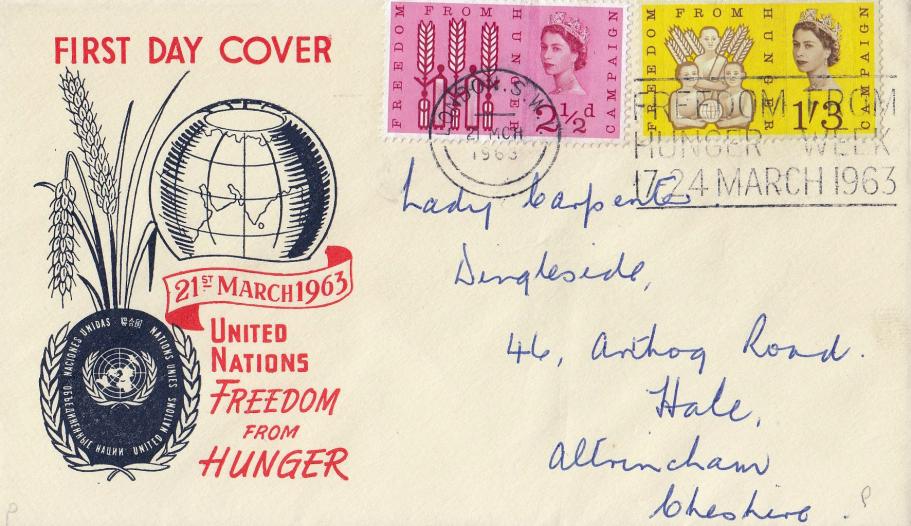 FIRST DAY COVER
FREEDOM FROM HUNGER CAMPAIGN
2½d
FREEDOM FROM HUNGER CAMPAIGN
1'3
LONDON. S.W.
21 MCH
1963
FREEDOM FROM
HUNGER WEEK
17-24 MARCH 1963
21ST MARCH 1963
UNITED
NATIONS
FREEDOM
FROM
HUNGER
NACIONES UNIDAS
NATIONS UNIES
ОБЪЕДИНЕННЫЕ НАЦИИ
UNITED NATIONS
Lady Carpenter
Dingleside,
46, Arthog Road.
Hale,
Altrincham
Cheshire.
P
P